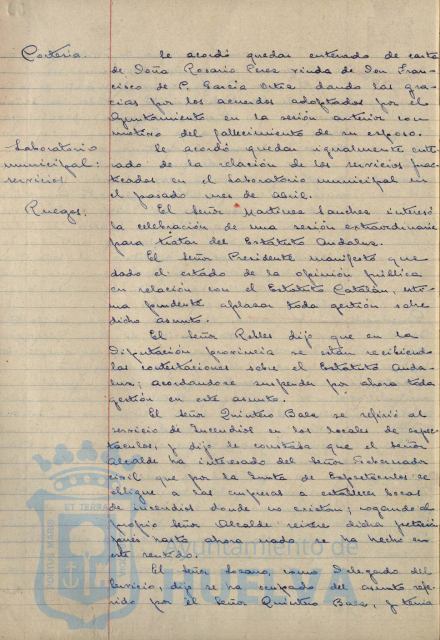 Cortesia. Se acordó quedar enterado de carta
de Doña Rosario Perez viuda de Don Fran-
cisco de P. García Ortiz dando las gra-
cias por los acuerdos adoptados por el
Ayuntamiento en la sesión anterior con
motivo del fallecimiento de su esposo.
Laboratorio municipal: servicios. Se acordó quedar igualmente ente-
rado de la relación de los servicios prac-
ticados en el Laboratorio municipal en
el pasado mes de abril.
Ruegos. El Señor Martinez Sanchez interesó
la celebración de una sesión extraordinaria
para tratar del Estatuto Andaluz.
El Señor Presidente manifestó que
dado el estado de la opinión pública
en relación con el Estatuto Catalán, esti-
ma prudente aplazar toda gestión sobre
dicho asunto.
El Señor Robles dijo que en la
Diputación provincia se están recibiendo
las contestaciones sobre el Estatuto Anda-
luz; acordandose suspender por ahora toda
gestión en este asunto.
El Señor Quintero Baez se refirió al
servicio de Incendios en los locales de espec-
táculos, y dijo le constaba que el Señor
Alcalde ha interesado del Señor Gobernador
civil que por la Junta de Espectáculos se
obligue a las empresas a establecer bocas
de incendios donde no existan; rogando al
propio Señor Alcalde reitere dicha petición
pues hasta ahora nada se ha hecho en
este sentido.
El Señor Lozano como Delegado del
Servicio, dijo se ha ocupado del asunto refe-
rido por el Señor Quintero Baez, y tenia
ET TERRA
PORTUS MARIS
Ayuntamiento de
HUELVA